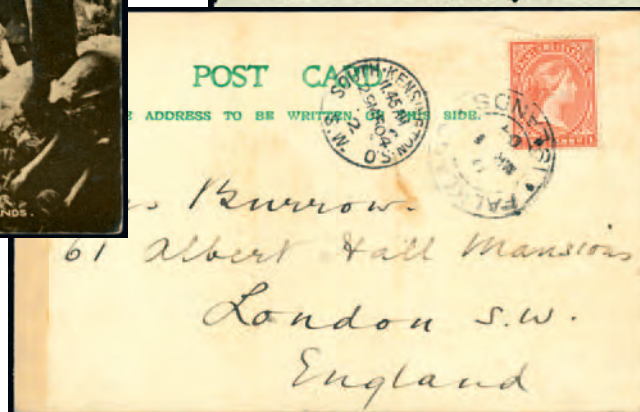 POST CARD
E ADDRESS TO BE WRITTEN ON THIS SIDE.
SOUTH KENSINGTON S.O.
11.45 AM
04
S.W. 2
FALKLAND ISLANDS
Burrow.
61 Albert Hall Mansions
London S.W.
England
NDS.